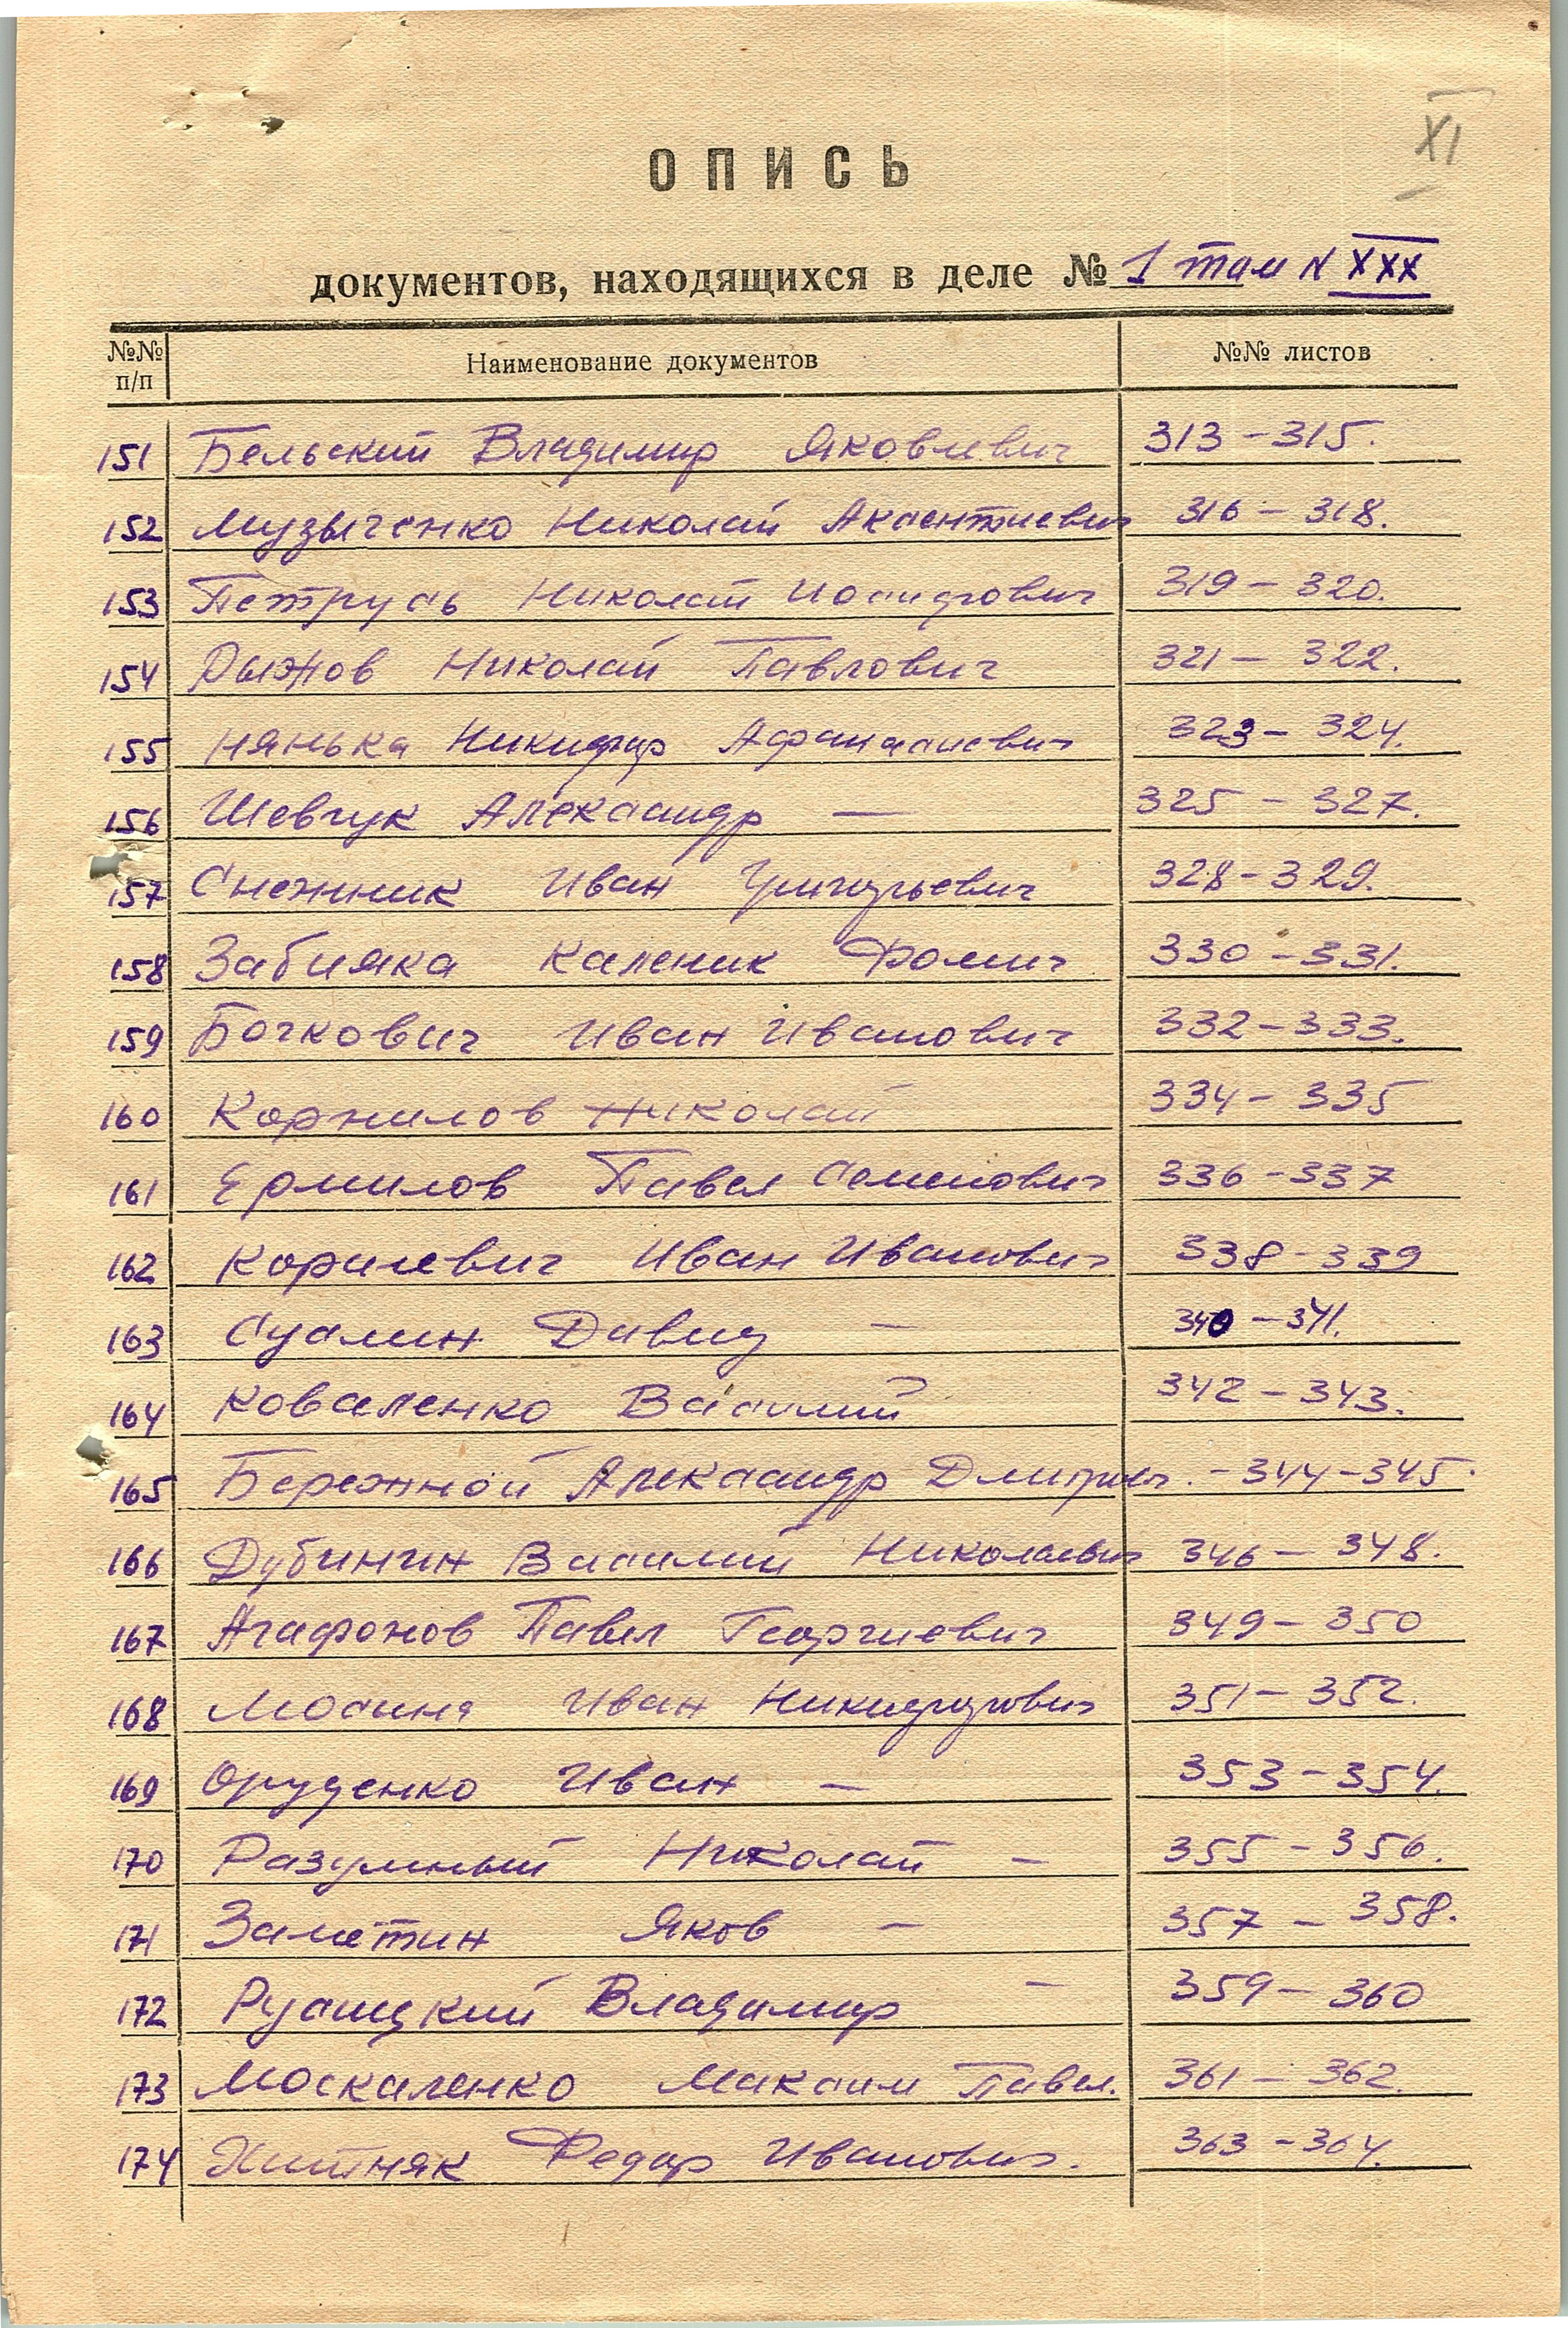 XI
ОПИСЬ
документов, находящихся в деле № 1 том N XXX
№№ п/п Наименование документов №№ листов
151 Бельский Владимир Яковлевич 313-315.
152 Музыченко Николай Аксентиевич 316-318.
153 Петрусь Николай Иосифович 319-320.
154 Рыжов Николай Павлович 321-322.
155 Нянька Никифор Афанасиевич 323-324.
156 Шевчук Александр — 325-327.
157 Снежник Иван Григорьевич 328-329.
158 Забияка Каленик Фомич 330-331.
159 Бочкович Иван Иванович 332-333.
160 Корнилов Николай 334-335
161 Ермилов Павел Семенович 336-337
162 Иван Иванович 338-339
163 Суслин Давид — 340-341.
164 Коваленко Василий 342-343.
165 Бережной Александр -344-345.
166 Дубинин Василий Николаевич 346-348.
167 Агафонов Павел Георгиевич 349-350
168 Иван Никифорович 351-352.
169 Оруденко Иван — 353-354.
170 Разумный Николай — 355-356.
171 Заметин Яков — 357-358.
172 Русицкий Владимир — 359-360
173 Москаленко Максим Павл. 361-362.
174 Хитняк Федор Иванович. 363-364.